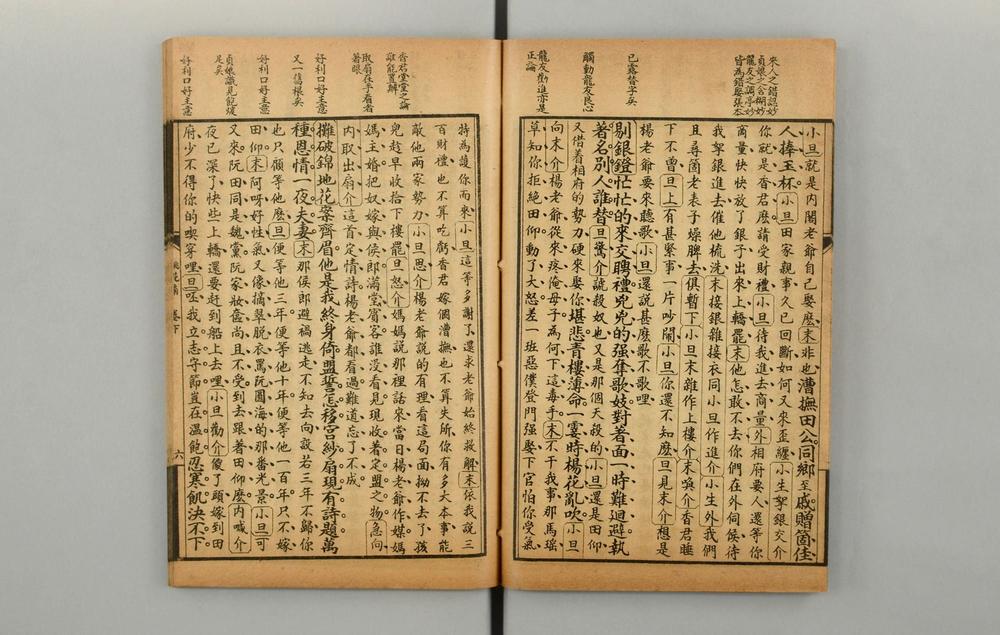 來人之錯認妙
貞娘之含糊妙
龍友之調停妙
皆為錯娶張本
已露替字矣
觸動龍友良心
龍友勸進亦是
正論
小旦就是內閣老爺自己娶麼末非也漕撫田公同鄉至戚贈箇佳
人捧玉杯小旦田家親事久已回斷如何又來歪纏小生拏銀交介
你就是香君麼請受財禮小旦待我進去商量外相府要人還等你
商量快快放了銀子出來上轎罷末他怎敢不去你們在外伺候待
我拏銀進去催他梳洗末接銀雜接衣同小旦作進介小生外我們
且尋箇老表子燥脾去俱暫下小旦末雜作上樓介末喚介香君睡
下不曾旦上有甚緊事一片吵鬧小旦你還不知麼旦見末介想是
楊老爺要來聽歌小旦還說甚麼歌不歌哩
剔銀鐙忙忙的來交聘禮兇兇的强奪歌妓對着面一時難迴避執
著名別人誰替旦驚介諕殺奴也又是那個天殺的小旦還是田仰
又借着相府的勢力硬來娶你堪悲青樓薄命一霎時楊花亂吹小旦
向末介楊老爺從來疼俺母子為何下這毒手末不干我事那馬瑤
草知你拒絕田仰動了大怒差一班惡僕登門强娶下官怕你受氣
香君堂之論
誰能置辭
取扇在手看者
著眼
好利口好主意
又一僞根矣
好利口好主意
貞娘識見飽煖
足矣
好利口好主意
特為護你而來小旦這等多謝了還求老爺始終救解末依我說三
百財禮也不算吃虧香君嫁個漕撫也不算失所你有多大本事能
敵他兩家勢力小旦思介楊老爺說的有理看這局面拗不去了孩
兒趁早收拾下樓罷旦怒介媽媽說那裡話來當日楊老爺作媒媽
媽主婚把奴嫁與侯郎滿堂賓客誰沒看見現收着定盟之物急向
內取出扇介這首定情詩楊老爺都看過難道忘了不成
攤破錦地花案齊眉他是我終身倚盟誓怎移宮紗扇現有詩題萬
種恩情一夜夫妻末那侯郎避禍逃走不知去向設若三年不歸你
也只顧等他麼旦便等他三年便等他十年便等他一百年只不嫁
田仰末阿呀好性氣又像摘翠脱衣罵阮圓海的那番光景小旦可
又來阮田同是魏黨阮家妝奩尚且不受到去跟著田仰麼內喊介
夜已深了快些上轎還要赶到船上去哩小旦勸介儍了頭嫁到田
府少不得你的喫穿哩旦呸我立志守節豈在溫飽忍寒飢決不下
桃花扇 卷下
六